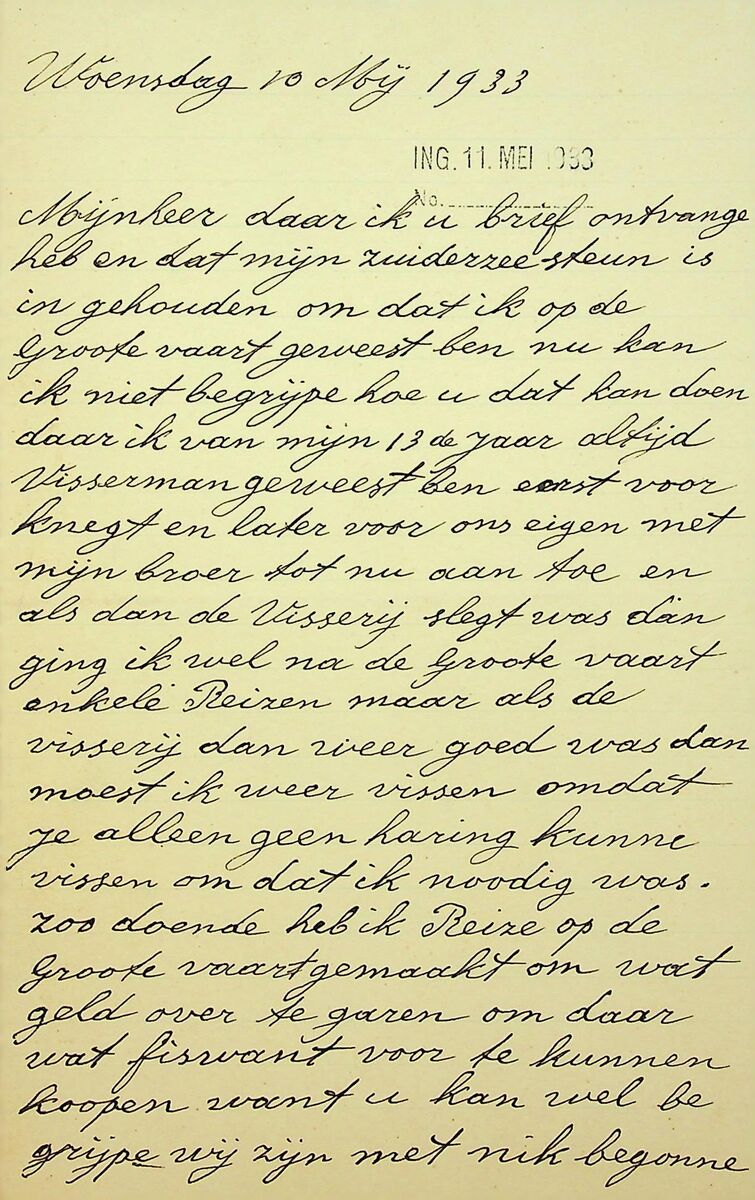 Woensdag 10 Mij 1933
ING. 11. MEI 1933
No.
Mijnheer daar ik u brief ontvange
heb en dat mijn zuiderzee steun is
in gehouden om dat ik op de
Groote vaart geweest ben nu kan
ik niet begrijpe hoe u dat kan doen
daar ik van mijn 13 de jaar altijd
Visserman geweest ben eerst voor
knegt en later voor ons eigen met
mijn broer tot nu aan toe en
als dan de Visserij slegt was dan
ging ik wel na de Groote vaart
enkele Reizen maar als de
visserij dan weer goed was dan
moest ik weer vissen omdat
je alleen geen haring kunne
vissen om dat ik noodig was.
zoo doende heb ik Reize op de
Groote vaart gemaakt om wat
geld over te garen om daar
wat fiswant voor te kunnen
koopen want u kan wel be
grijpe wij zijn met nik begonne